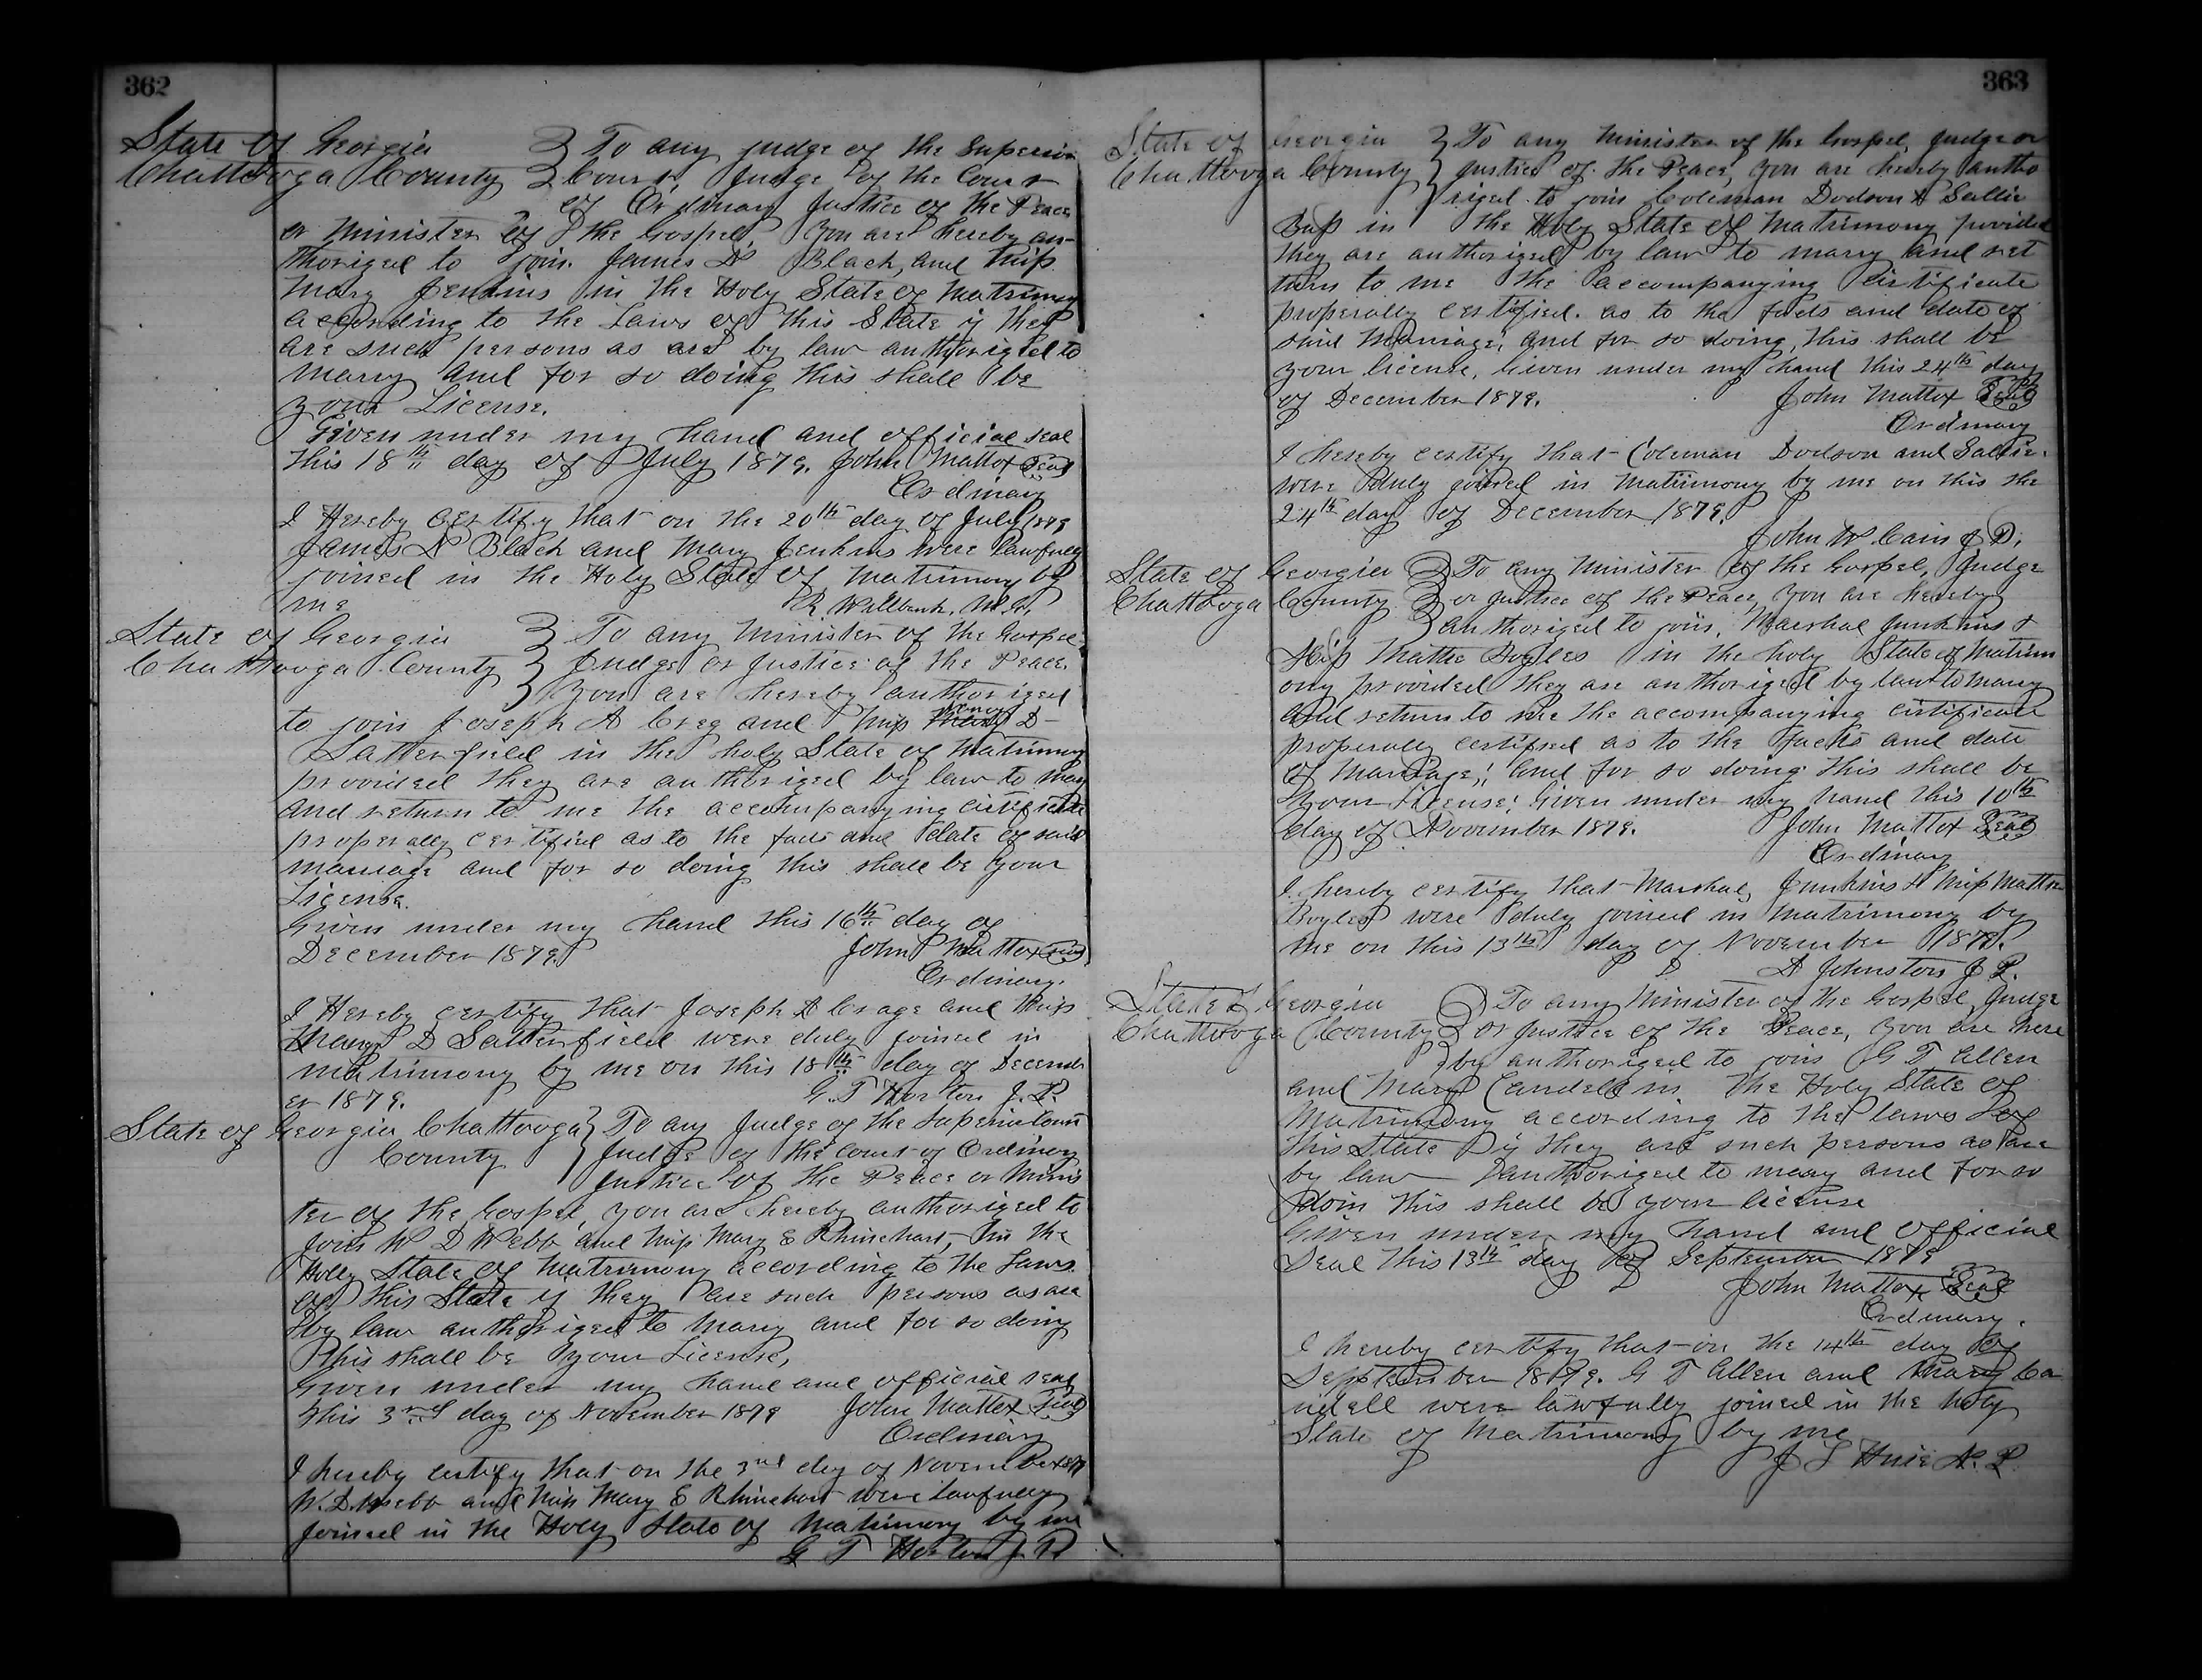 362
State of Georgia } To any judge of the Superior
Chattooga County } Court, Judge of the Court
of Ordinary Justice of the Peace
or Minister of the Gospel, You are hereby au-
thorized to join James N Black, and Miss
Mary Jenkins in the Holy State of Matrimony
according to the Laws of this State if they
are such persons as are by law authorized to
marry and for so doing this shall be
your License.
Given under my hand and official seal
this 18th day of July 1879. John Mattox Seal
Ordinary
I Hereby certify that on the 20th day of July 1879
James N Black and Mary Jenkins were lawfully
joined in the Holy State of matrimony by
me R. Willbank, M.G.
State of Georgia } To any Minister of the Gospel,
Chattooga County } Judge or Justice of the Peace.
You are hereby authorized
to join Joseph A Creg and Miss Mary D-
Satterfield in the holy State of Matrimony
provided they are authorized by law to marry
and return to me the accompanying certificate
properally certified as to the facts and date of said
marriage and for so doing this shall be your
License.
Given under my hand this 16th day of
December 1879. John Mattox Seal
Ordinary.
I Hereby certify that Joseph A Crage and Miss
Mary D Satterfield were duly joined in
matrimony by me on this 18th day of Decemb
er 1879. G. T Horton J. P.
State of Georgia Chattooga } To any Judge of the Superior Court
County } Judge of the Court of Ordinary
Justice of the Peace or Minis
ter of the Gospel, you are hereby authorized to
join W D Webb and Miss Mary E Rhinehart, in the
Holly State of Matrimony according to the Laws
of this State if they are such persons as are
by law authorized to marry and for so doing
this shall be your License,
Given under my hand and official seal
this 3rd day of November 1879 John Mattox Seal
Ordinary
I hereby certify that on the 3rd day of November 1879
W. D. Webb and Miss Mary E Rhinehart were lawfully
joined in the Holy State of Matrimony by me
G T Horton J. P.
363
State of Georgia } To any Minister of the Gospel, Judge or
Chattooga County } Justice of the Peace, you are hereby autho
rized to join Coleman Dodson & Sallie
in the Holy State of Matrimony provided
they are authorized by law to marry and ret
turn to me the accompanying certificate
properally certified. as to the facts and date of
said Marriage, and for so doing, this shall be
your license, Given under my hand this 24th day
of December 1879. John Mattox Seal
Ordinary
I hereby certify that Coleman Dodson and Sallie.
were duly joined in Matrimony by me on this the
24th day of December 1879.
John W Cain J P.
State of Georgia } To any Minister of the Gospel, Judge
Chattooga County } or Justice of the Peace, You are hereby
authorized to join, Marshal Junkins &
Miss Mattie Boyles in the holy State of Matrim
ony provided they are authorized by law to marry
and return to me the accompanying certificate
properally certified as to the facts and date
of marriage; and for so doing this shall be
your License; Given under my hand this 10th
day of November 1879. John Mattox Seal
Ordinary
I hereby certify that Marshal, Junkins & Miss Mattie
Boyles were duly joined in Matrimony by
me on this 13th day of November 1879.
A Johnston J P.
State of Georgia } To any Minister of the Gospel, Judge
Chattooga County } or Justice of the Peace, You are here
by authorized to join G T Allen
and Mary Candell in the Holy State of
Matrimony according to the laws of
this State if they are such persons as are
by law authorized to marry and for so
doin this shall be your license
Given under my hand and official
Seal this 13th day of September 1879
John Mattox Seal
Ordinary.
I hereby certify that on the 14th day of
September 1879. G T Allen and Mary Ca
ndell were lawfully joined in the holy
State of Matrimony by me
J L Huie N. P.